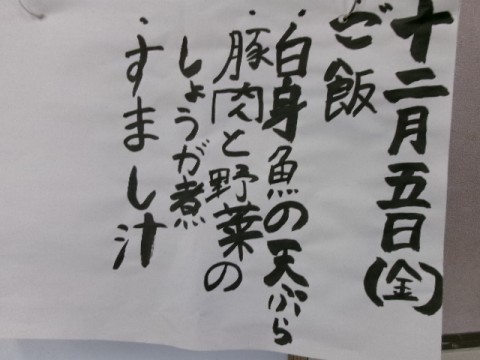 十二月五日(金)
ご飯
・白身魚の天ぷら
・豚肉と野菜の
しょうが煮
・すまし汁